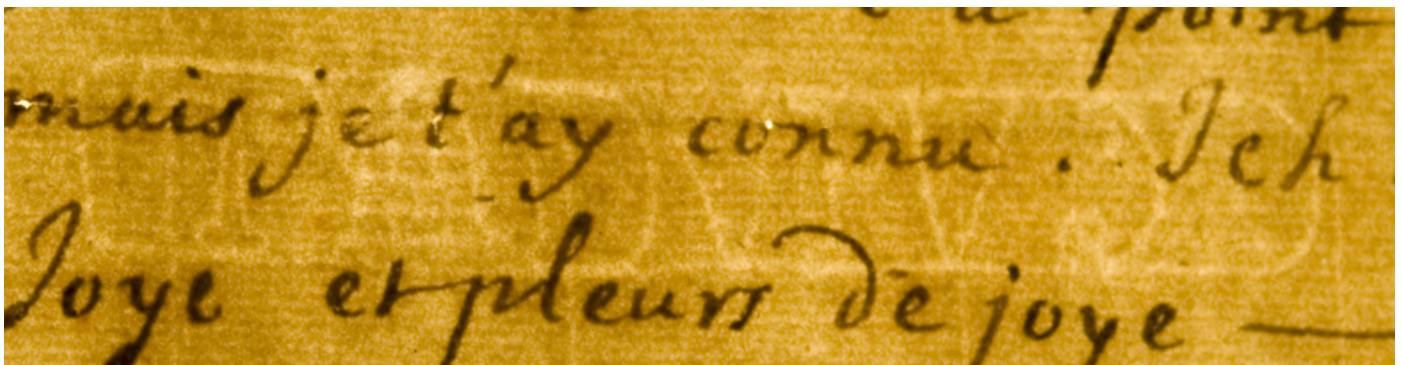 point
mais je t'ay connu . Jeh .
Joye et pleurs de joye —